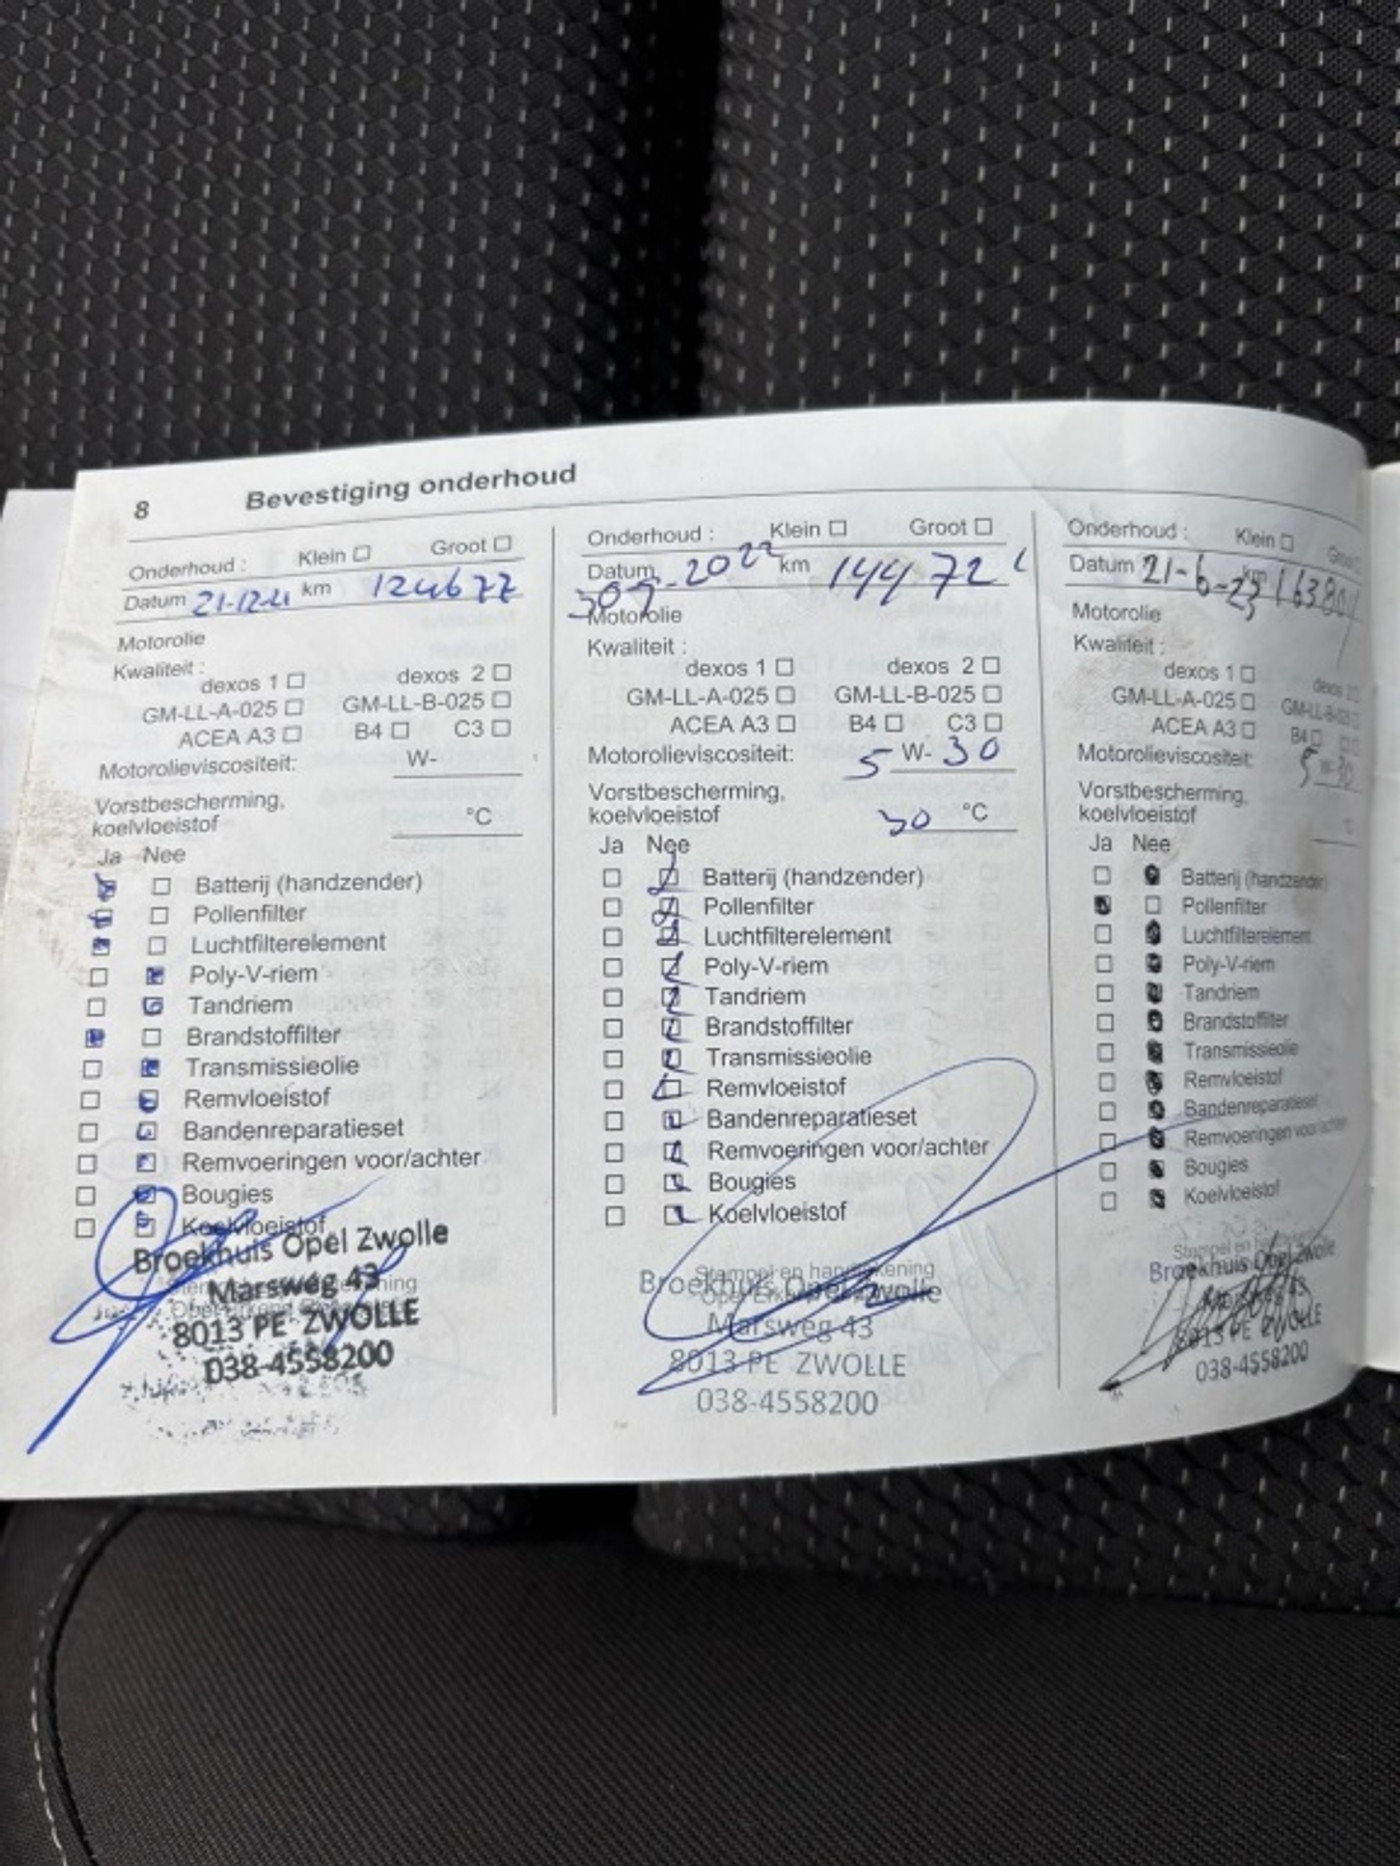 8 Bevestiging onderhoud
Onderhoud : Klein □ Groot □
Datum 21-12-21 km 124677
Motorolie
Kwaliteit :
dexos 1 □ dexos 2 □
GM-LL-A-025 □ GM-LL-B-025 □
ACEA A3 □ B4 □ C3 □
Motorolieviscositeit: W-
Vorstbescherming,
koelvloeistof °C
Ja Nee
Batterij (handzender)
Pollenfilter
Luchtfilterelement
Poly-V-riem
Tandriem
Brandstoffilter
Transmissieolie
Remvloeistof
Bandenreparatieset
Remvoeringen voor/achter
Bougies
Koelvloeistof
Broekhuis Opel Zwolle
Marsweg 43
8013 PE ZWOLLE
038-4558200
Onderhoud : Klein □ Groot □
Datum 2022 km 14472
Motorolie
Kwaliteit :
dexos 1 □ dexos 2 □
GM-LL-A-025 □ GM-LL-B-025 □
ACEA A3 □ B4 □ C3 □
Motorolieviscositeit: 5 W- 30
Vorstbescherming,
koelvloeistof 30 °C
Ja Nee
Batterij (handzender)
Pollenfilter
Luchtfilterelement
Poly-V-riem
Tandriem
Brandstoffilter
Transmissieolie
Remvloeistof
Bandenreparatieset
Remvoeringen voor/achter
Bougies
Koelvloeistof
Stempel en handtekening
Broekhuis Opel Zwolle
Marsweg 43
8013 PE ZWOLLE
038-4558200
Onderhoud : Klein □ Groot □
Datum 21-6-23 km
Motorolie
Kwaliteit :
dexos 1 □ dexos 2 □
GM-LL-A-025 □ GM-LL-B-025 □
ACEA A3 □ B4 □
Motorolieviscositeit: 5 W- 30
Vorstbescherming,
koelvloeistof °C
Ja Nee
Batterij (handzender)
Pollenfilter
Luchtfilterelement
Poly-V-riem
Tandriem
Brandstoffilter
Transmissieolie
Remvloeistof
Bandenreparatieset
Remvoeringen voor/achter
Bougies
Koelvloeistof
Stempel en
Broekhuis Opel Zwolle
Marsweg 43
8013 PE ZWOLLE
038-4558200